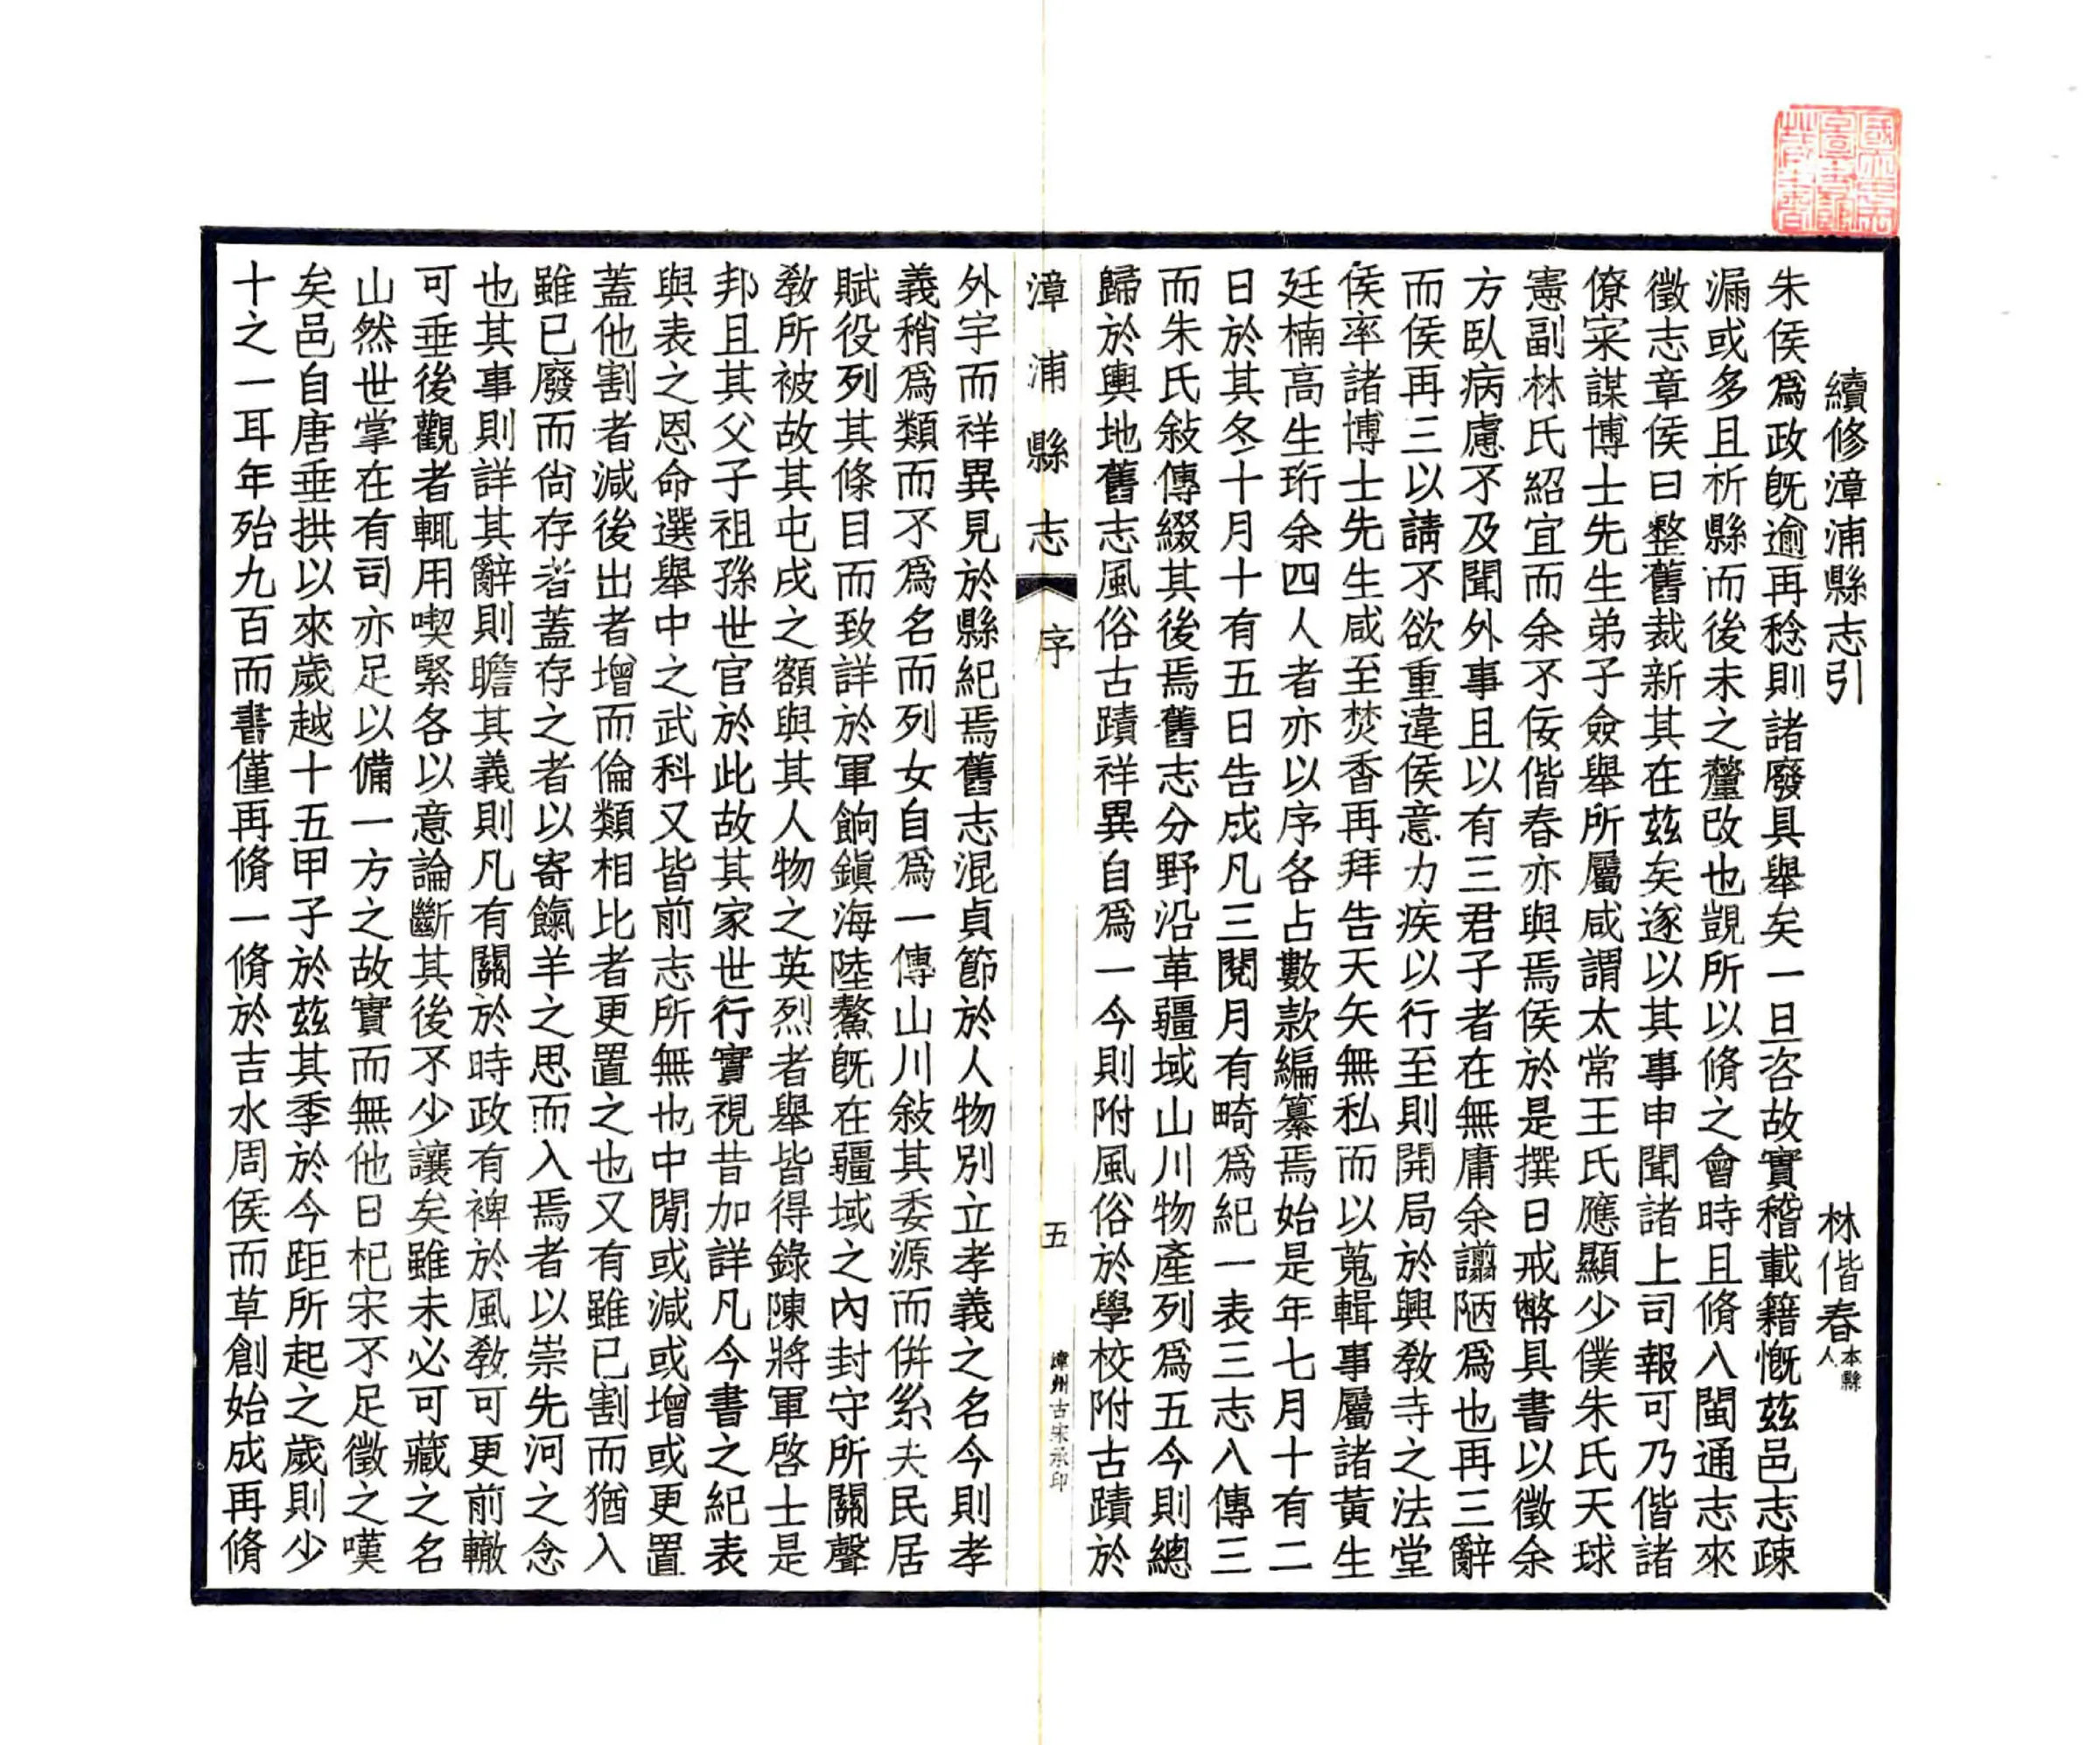 續修漳浦縣志引
林偕春本縣人
朱侯爲政旣逾再稔則諸廢具舉矣一旦咨故實稽載籍慨茲邑志疎
漏或多且析縣而後未之釐改也覬所以脩之會時且脩八閩通志來
徵志章侯曰整舊裁新其在茲矣遂以其事申聞諸上司報可乃偕諸
僚寀謀博士先生弟子僉舉所屬咸謂太常王氏應顯少僕朱氏天球
憲副林氏紹宜而余不佞偕春亦與焉侯於是撰日戒幣具書以徵余
方臥病慮不及聞外事且以有三君子者在無庸余譾陋爲也再三辭
而侯再三以請不欲重違侯意力疾以行至則開局於興教寺之法堂
侯率諸博士先生咸至焚香再拜告天矢無私而以蒐輯事屬諸黃生
廷楠高生珩余四人者亦以序各占數款編纂焉始是年七月十有二
日於其冬十月十有五日告成凡三閱月有畸爲紀一表三志入傳三
而朱氏敍傳綴其後焉舊志分野沿革疆域山川物產列爲五今則總
歸於輿地舊志風俗古蹟祥異自爲一今則附風俗於學校附古蹟於
漳浦縣志
序
五
漳州古宋承印
外宇而祥異見於縣紀焉舊志混貞節於人物別立孝義之名今則孝
義稍爲類而不爲名而列女自爲一傳山川敍其委源而倂系夫民居
賦役列其條目而致詳於軍餉鎭海陸鰲旣在疆域之內封守所關聲
敎所被故其屯戍之額與其人物之英烈者舉皆得錄陳將軍啓士是
邦且其父子祖孫世官於此故其家世行實視昔加詳凡今書之紀表
與表之恩命選舉中之武科又皆前志所無也中閒或減或增或更置
蓋他割者減後出者增而倫類相比者更置之也又有雖已割而猶入
雖已廢而尙存者蓋存之者以寄餼羊之思而入焉者以崇先河之念
也其事則詳其辭則瞻其義則凡有關於時政有裨於風敎可更前轍
可垂後觀者輒用喫緊各以意論斷其後不少讓矣雖未必可藏之名
山然世掌在有司亦足以備一方之故實而無他日杞宋不足徵之嘆
矣邑自唐垂拱以來歲越十五甲子於茲其季於今距所起之歲則少
十之一耳年殆九百而書僅再脩一脩於吉水周侯而草創始成再脩